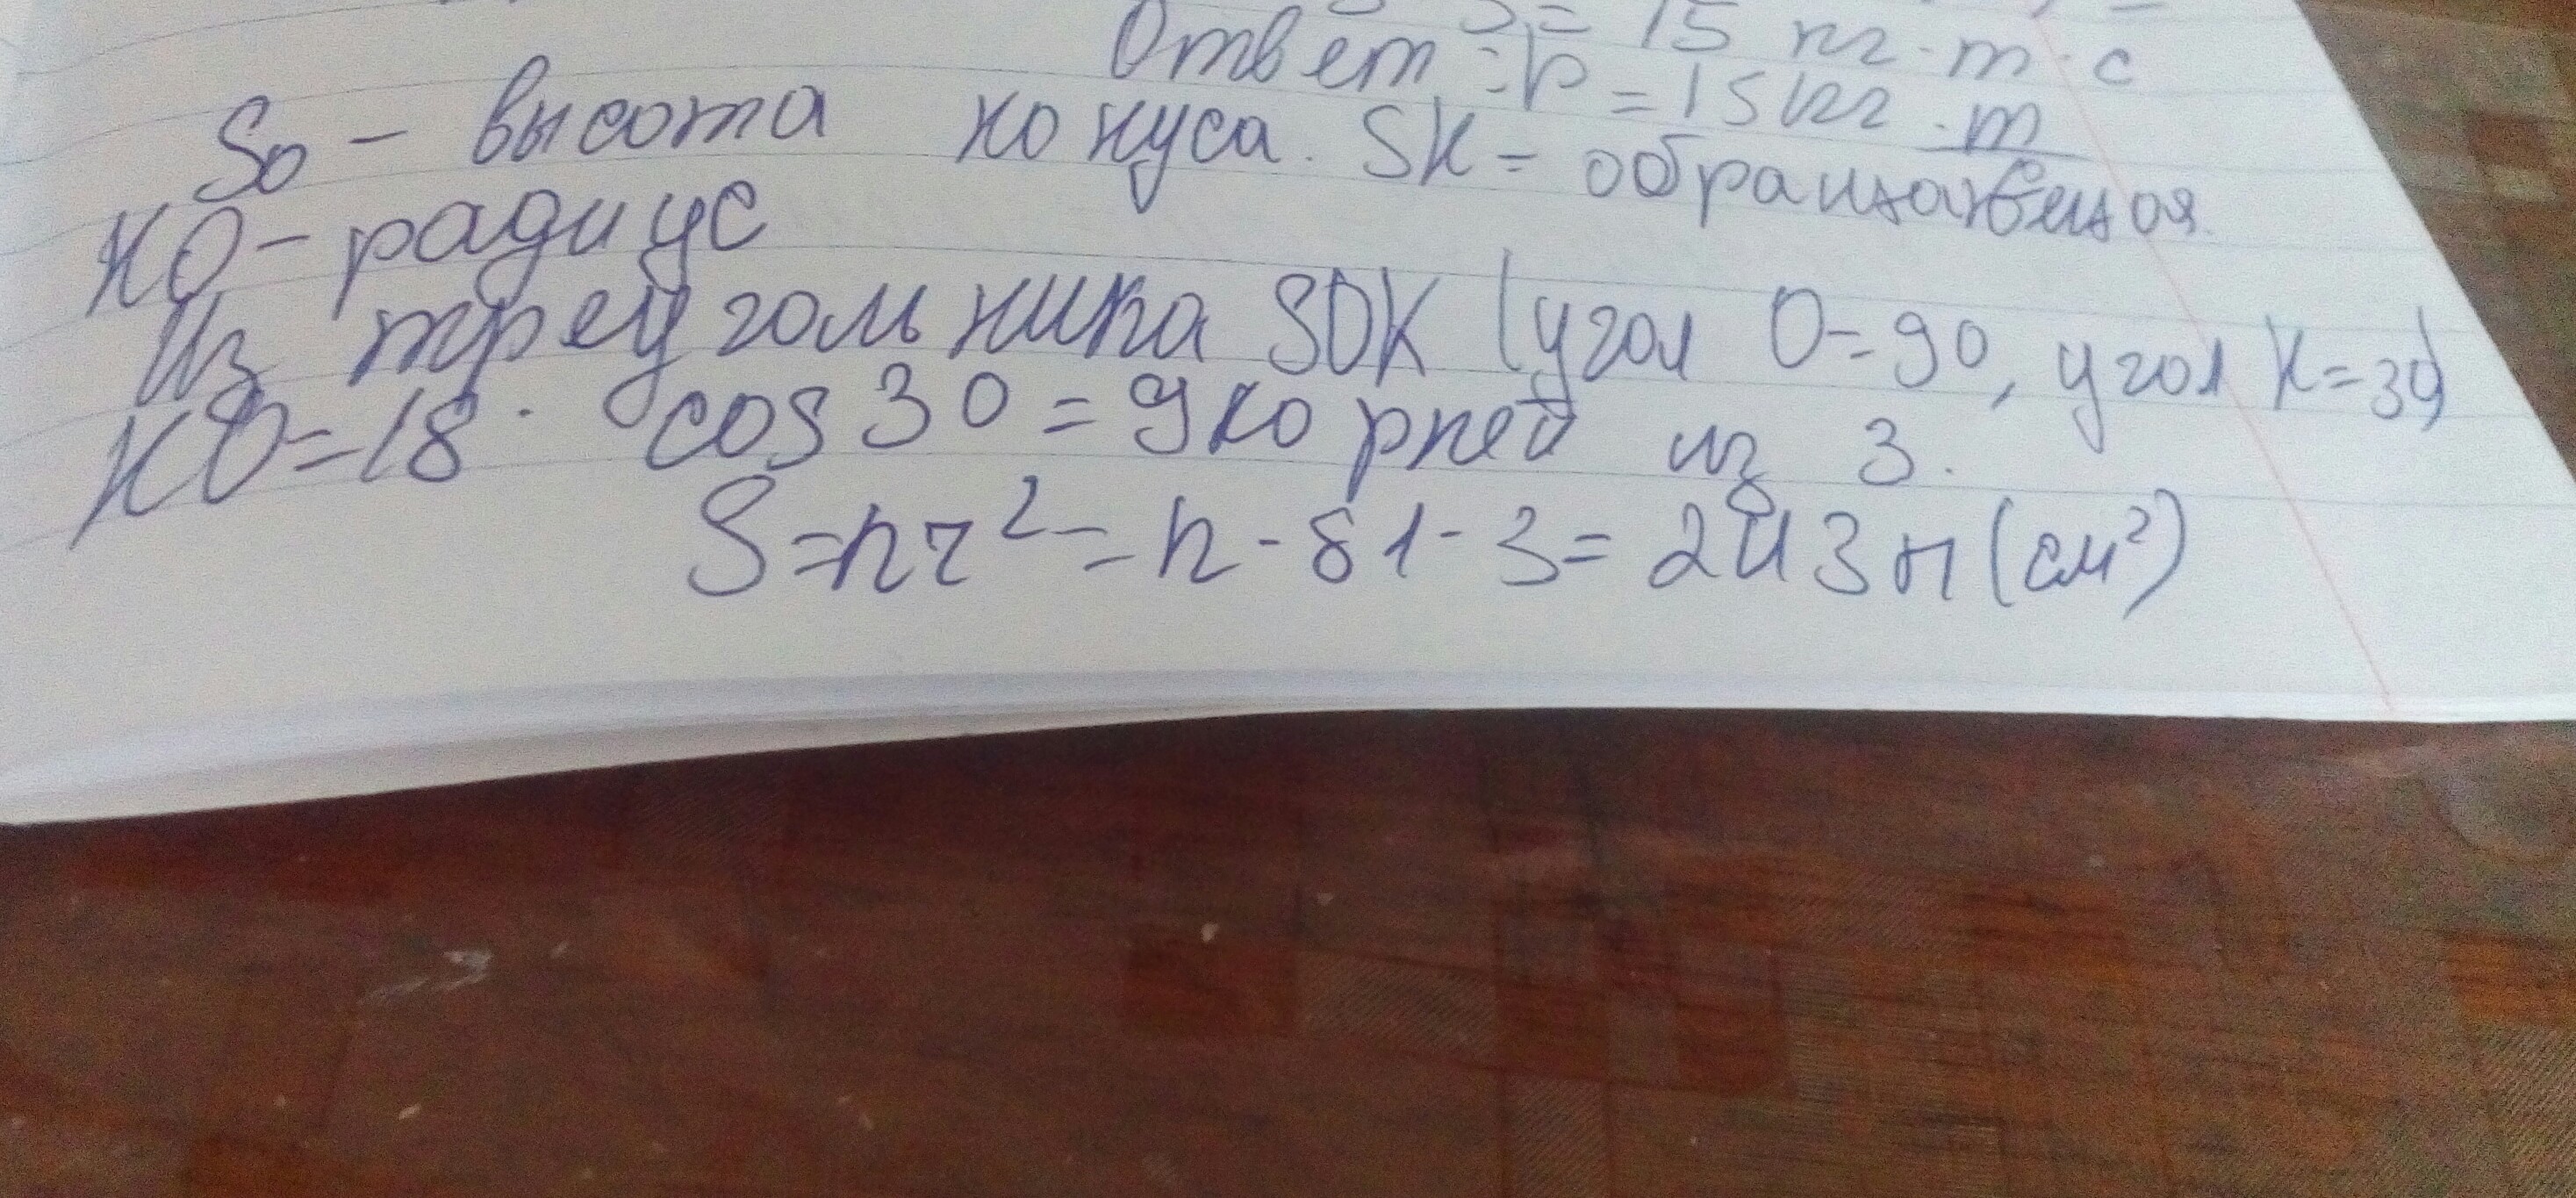 S = 15 кг · m · с
Ответ: P = 15 кг · m/с
SO – высота конуса. SK = образ
KO – радиус
Из треугольника SOK (угол O = 90, угол K = 30)
KO = 18 · cos 30 = 9 корней из 3.
S = пr² = п · 81 · 3 = 243 п (см²)